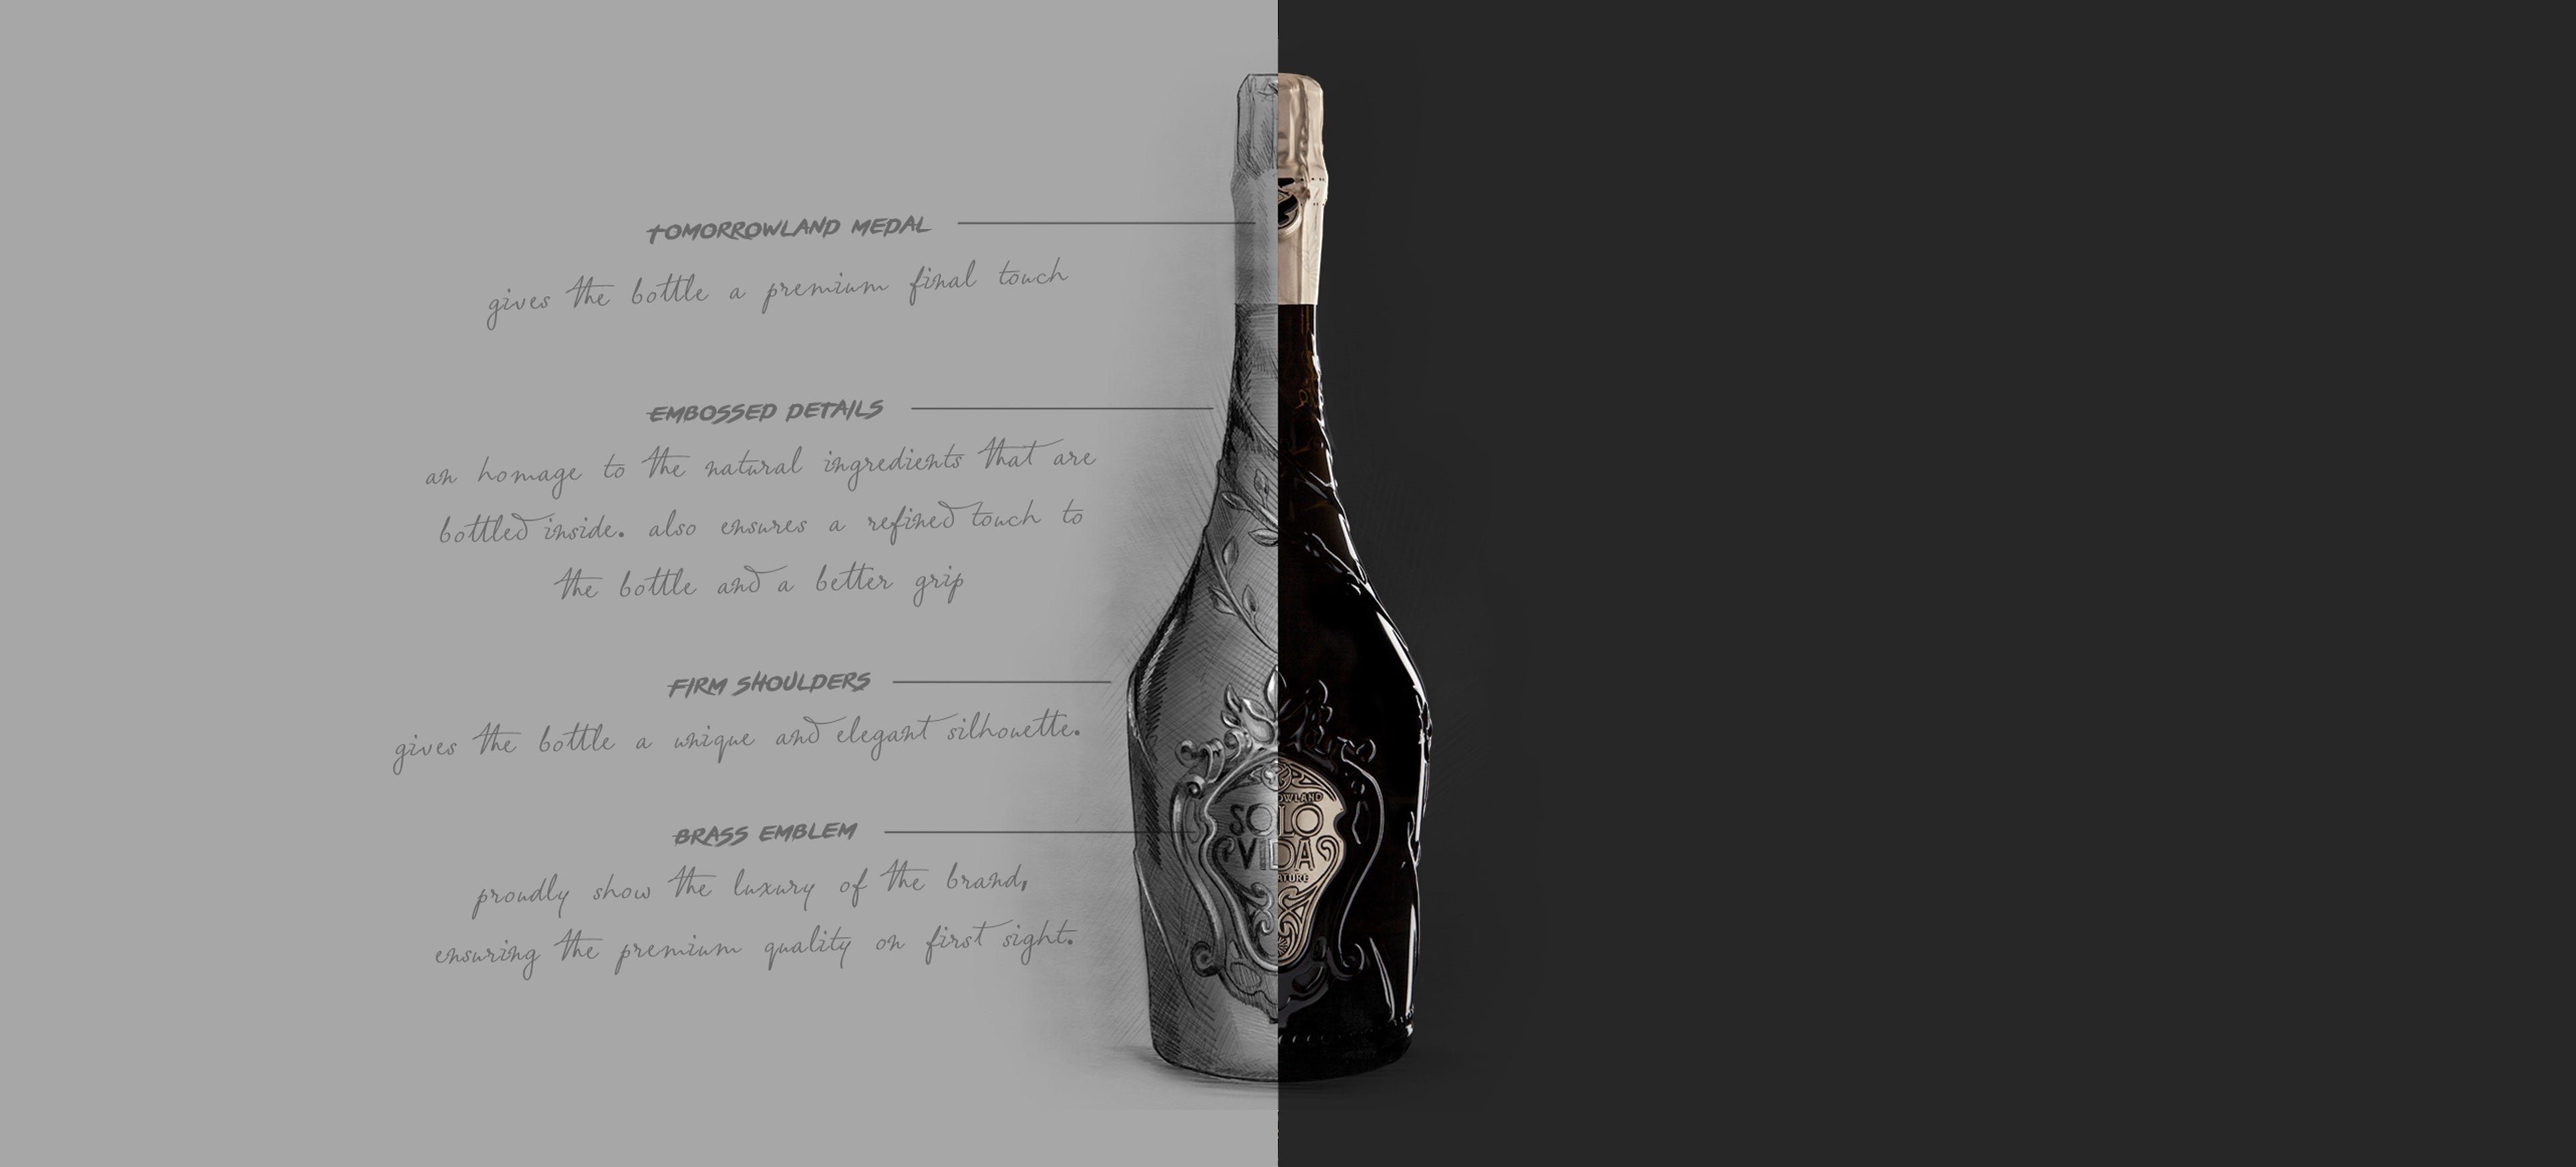 TOMORROWLAND MEDAL
gives the bottle a premium final touch
EMBOSSED DETAILS
an homage to the natural ingredients that are
bottled inside. also ensures a refined touch to
the bottle and a better grip
FIRM SHOULDERS
gives the bottle a unique and elegant silhouette.
BRASS EMBLEM
proudly show the luxury of the brand,
ensuring the premium quality on first sight.
OWLAND
SOLO
VIDA
ATURE